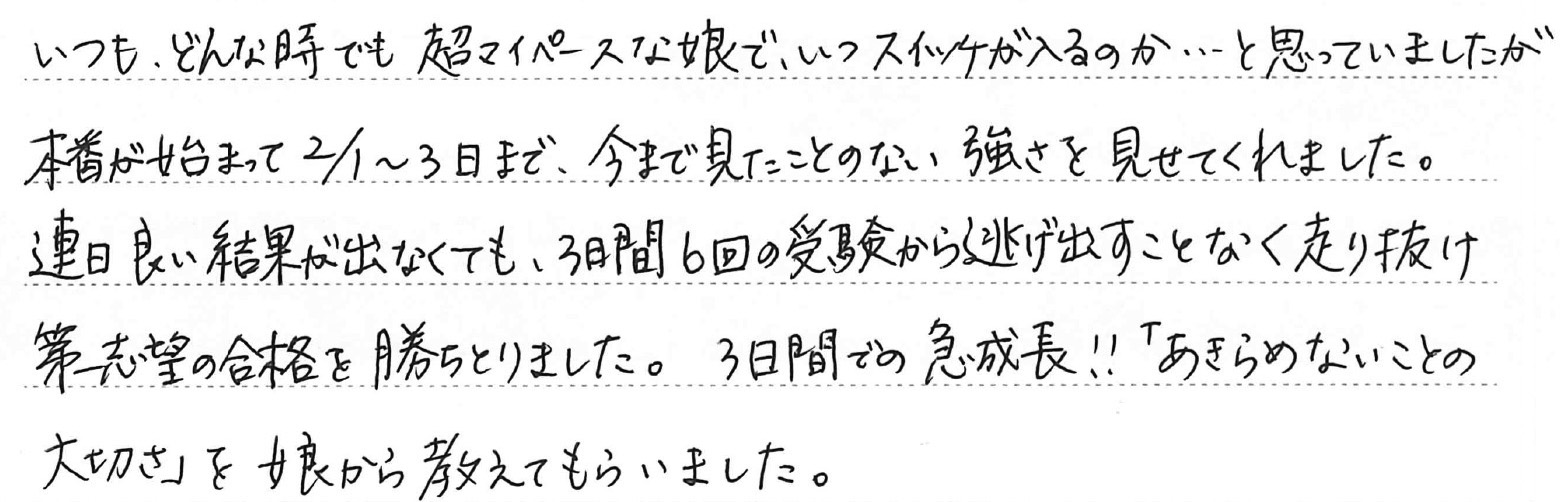 いつも、どんな時でも 超マイペースな娘で、いつ スイッチが入るのか…と思っていましたが
本番が始まって 2/1～3日まで、今まで見たことのない 強さを 見せてくれました。
連日良い結果が出なくても、3日間6回の受験から逃げ出すことなく走り抜け
第一志望の合格を勝ちとりました。 3日間での 急成長!!「あきらめないことの
大切さ」を 娘から教えてもらいました。